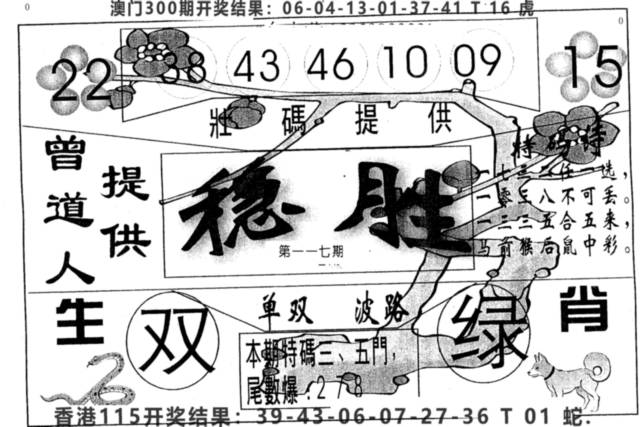 澳门300期开奖结果：06-04-13-01-37-41 T 16 虎
22 38 43 46 10 09 15
壯碼提供
曾道人
提供
稳胜
第一一七期
特碼詩
一七三二任一选，
一零三八不可丢。
一二三五合五来，
马前猴后鼠中彩。
生肖
单双 波路
双 绿
本期特碼三、五門，
尾數爆：2 7 8
香港115开奖结果：39-43-06-07-27-36 T 01 蛇.